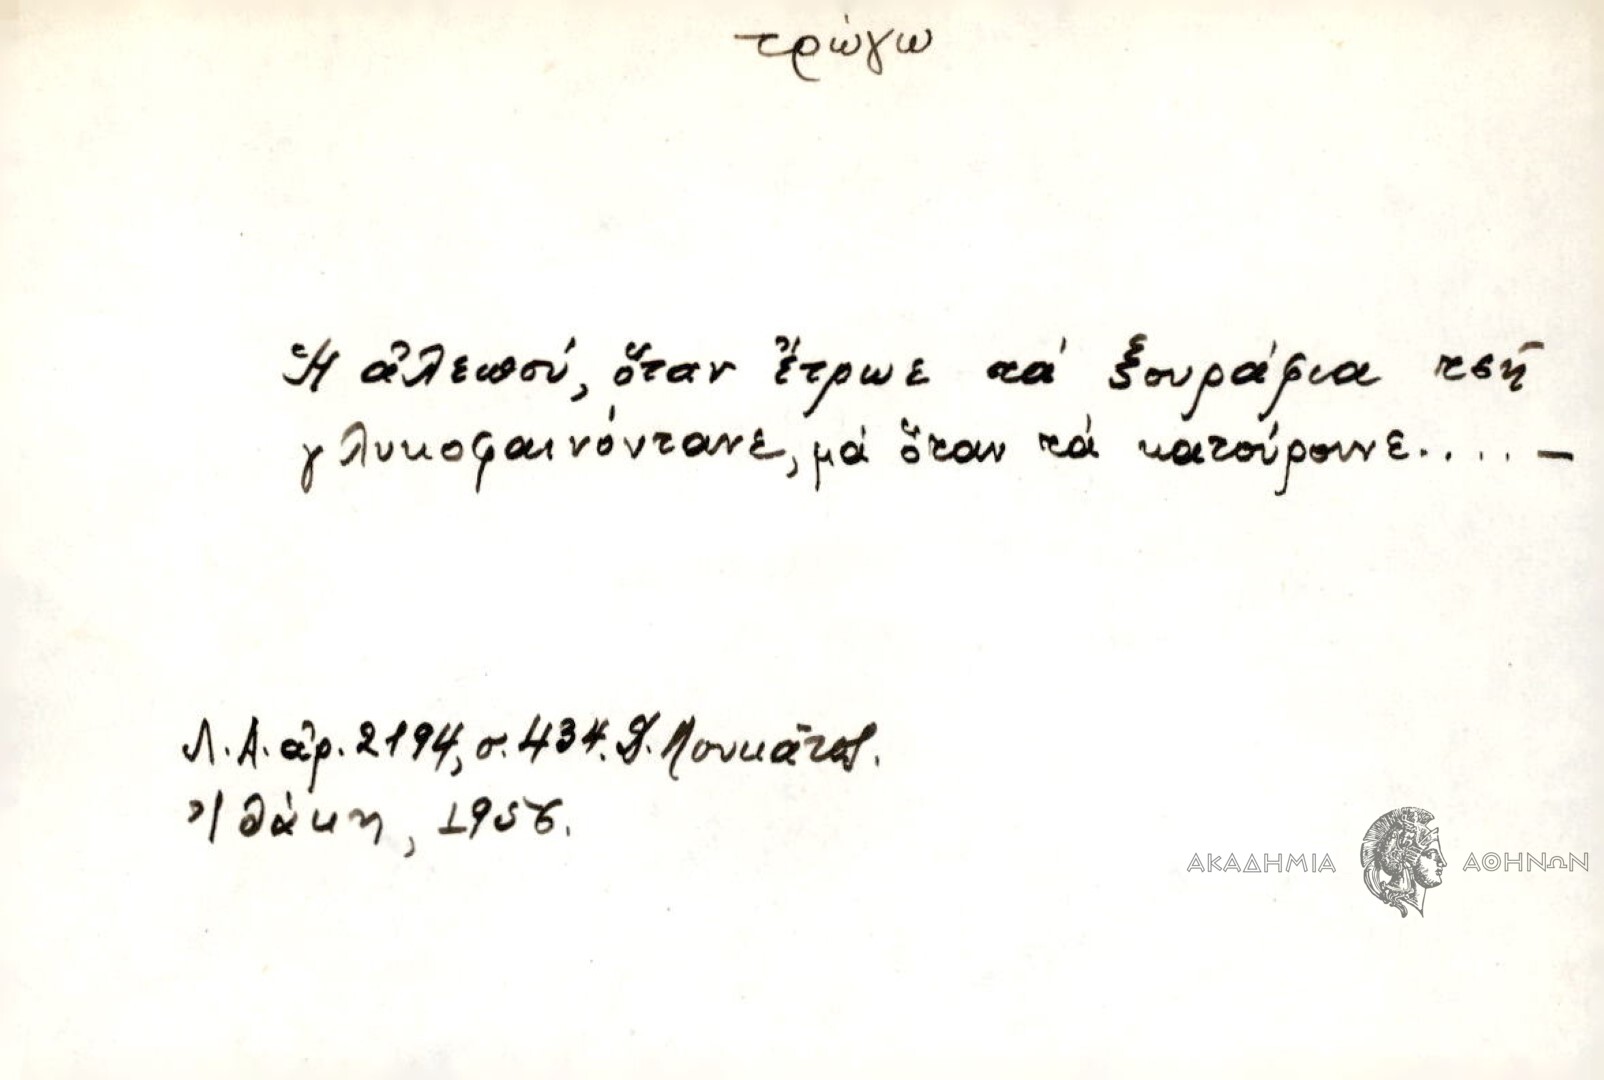 τρώγω
Ἡ ἀλεπού, ὅταν ἔτρωε τά ξουράφια τσῆ
γλυκοφαινόντανε, μά ὅταν τά κατούρουνε.....—
Λ.Α. ἀρ. 2194, σ. 434. Δ. Λουκᾶτος.
Ἰθάκη, 1956.
ΑΚΑΔΗΜΙΑ ΑΘΗΝΩΝ